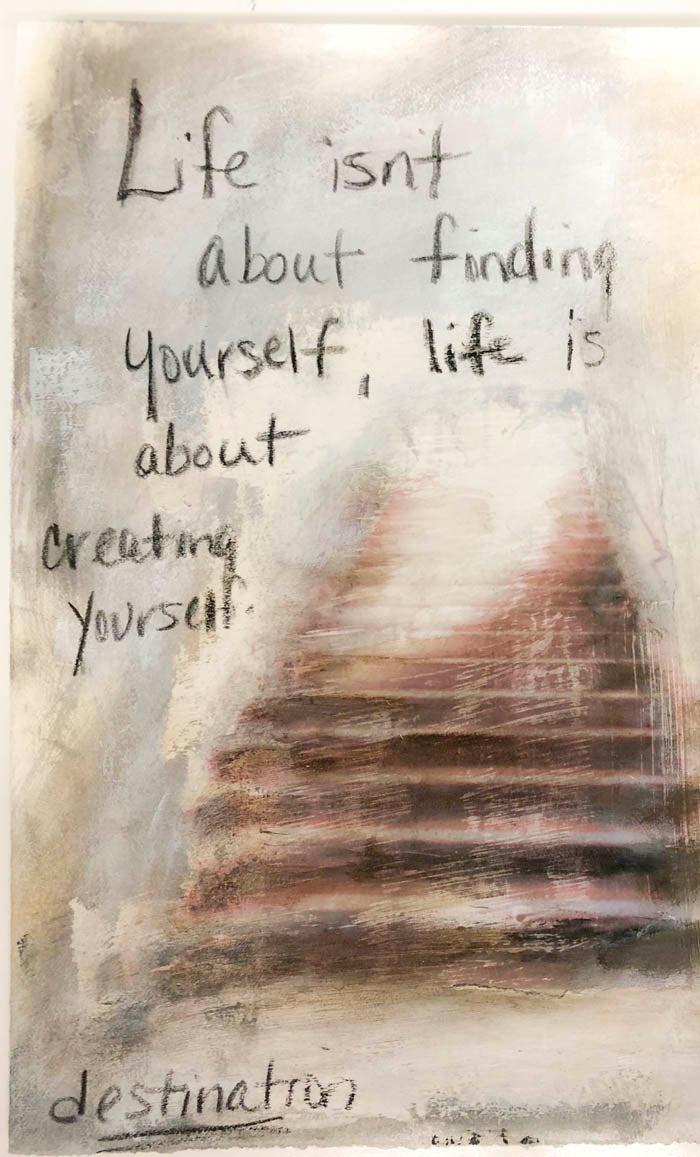 Life isn't
about finding
yourself, life is
about
creating
yourself.
destination